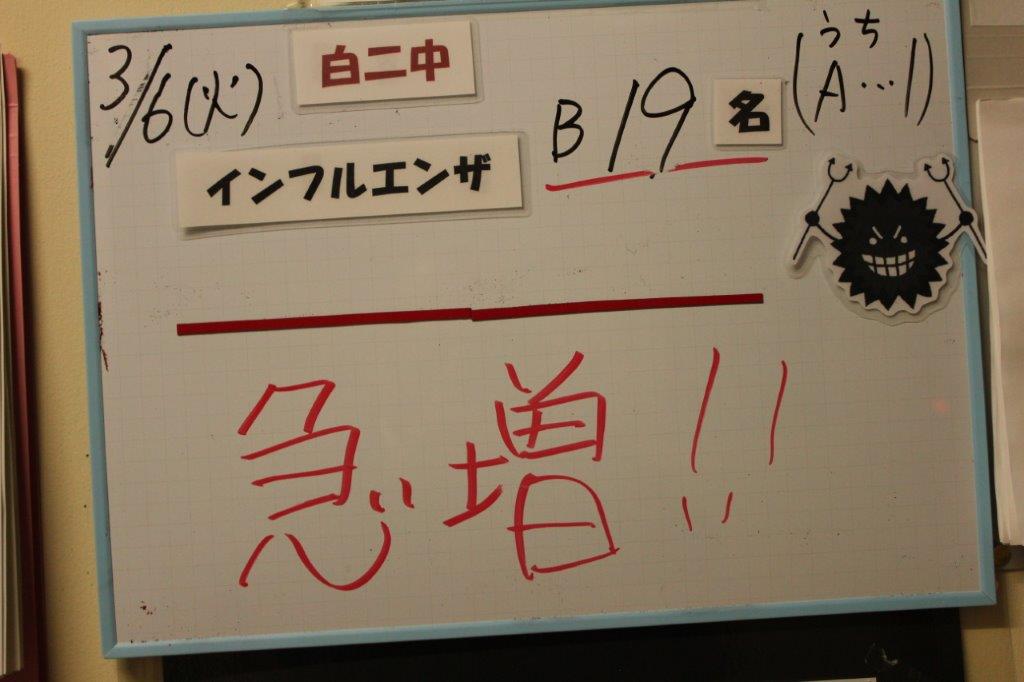 3/6(火) 白二中
インフルエンザ B 19名 (うち A…1)
急増!!